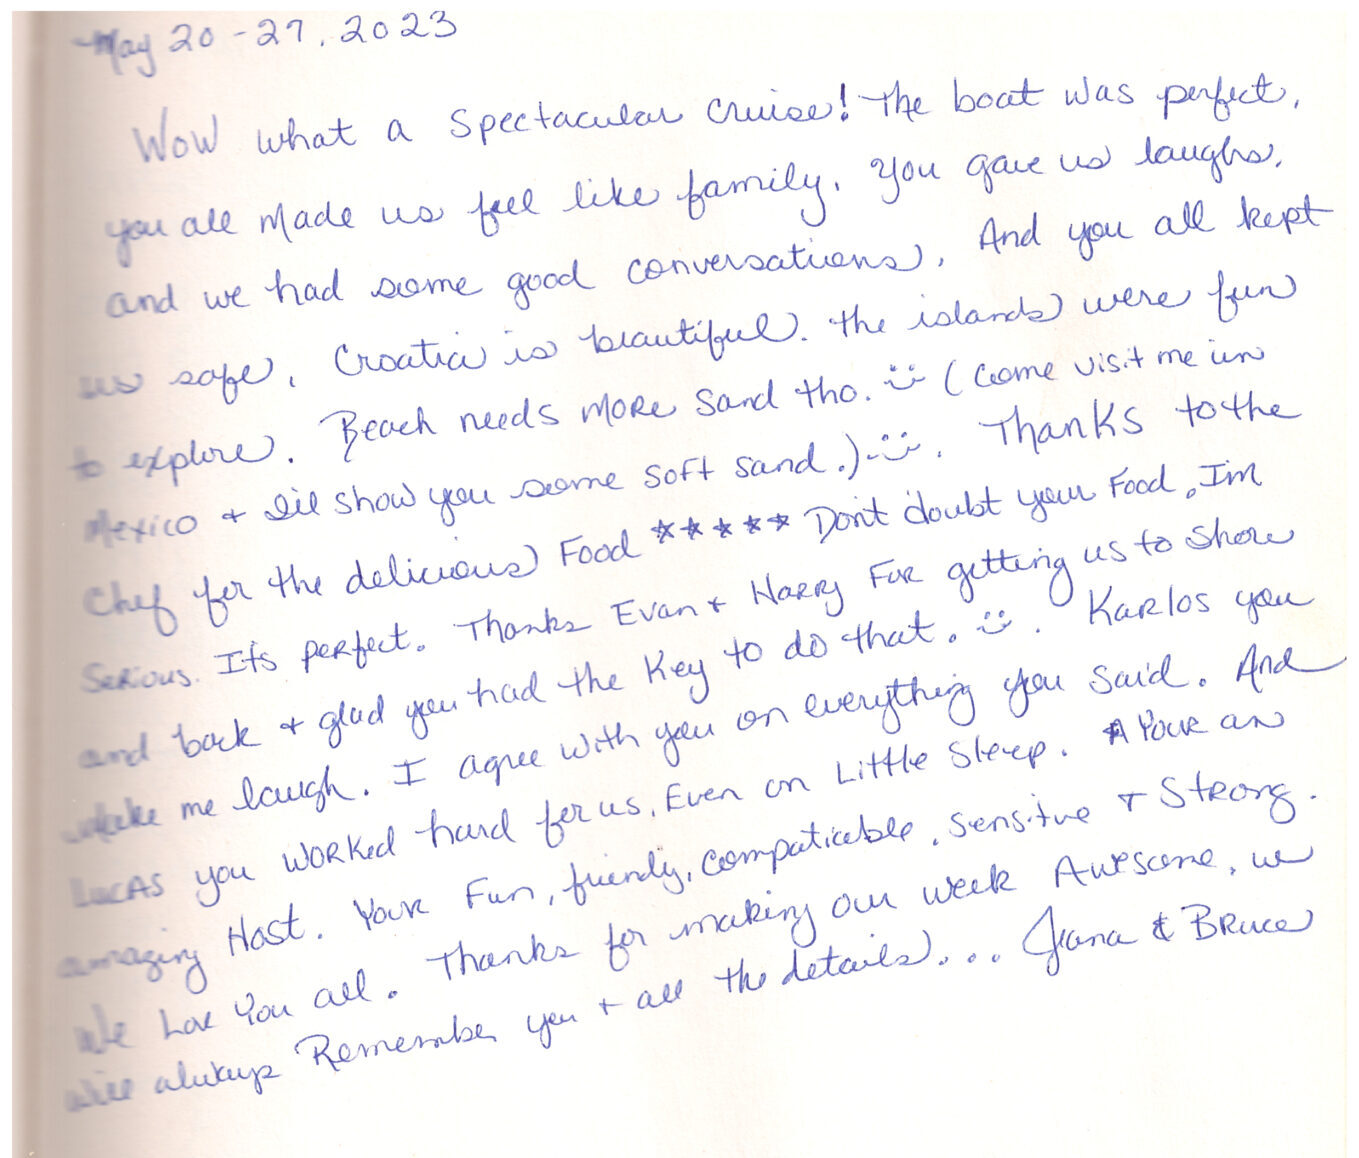 May 20-27, 2023
Wow what a spectacular cruise! The boat was perfect,
you all made us feel like family. You gave us laughs,
and we had some good conversations. And you all kept
us safe. Croatia is beautiful. The islands were fun
to explore. Beach needs more sand tho. :) (Come visit me in
Mexico + I'll show you some soft sand.) :). Thanks to the
Chef for the delicious Food ***** Don't doubt your Food. I'm
Serious. It's perfect. Thanks Evan + Harry For getting us to shore
and back + glad you had the key to do that. :). Karlos you
make me laugh. I agree with you on everything you said. And
Lucas you worked hard for us, Even on Little Sleep. Your an
amazing Host. Your Fun, friendly, compaticable, sensitve + Strong.
We Love You all. Thanks for making our week Awesome, we
will always Remember you + all the details... Jana & Bruce